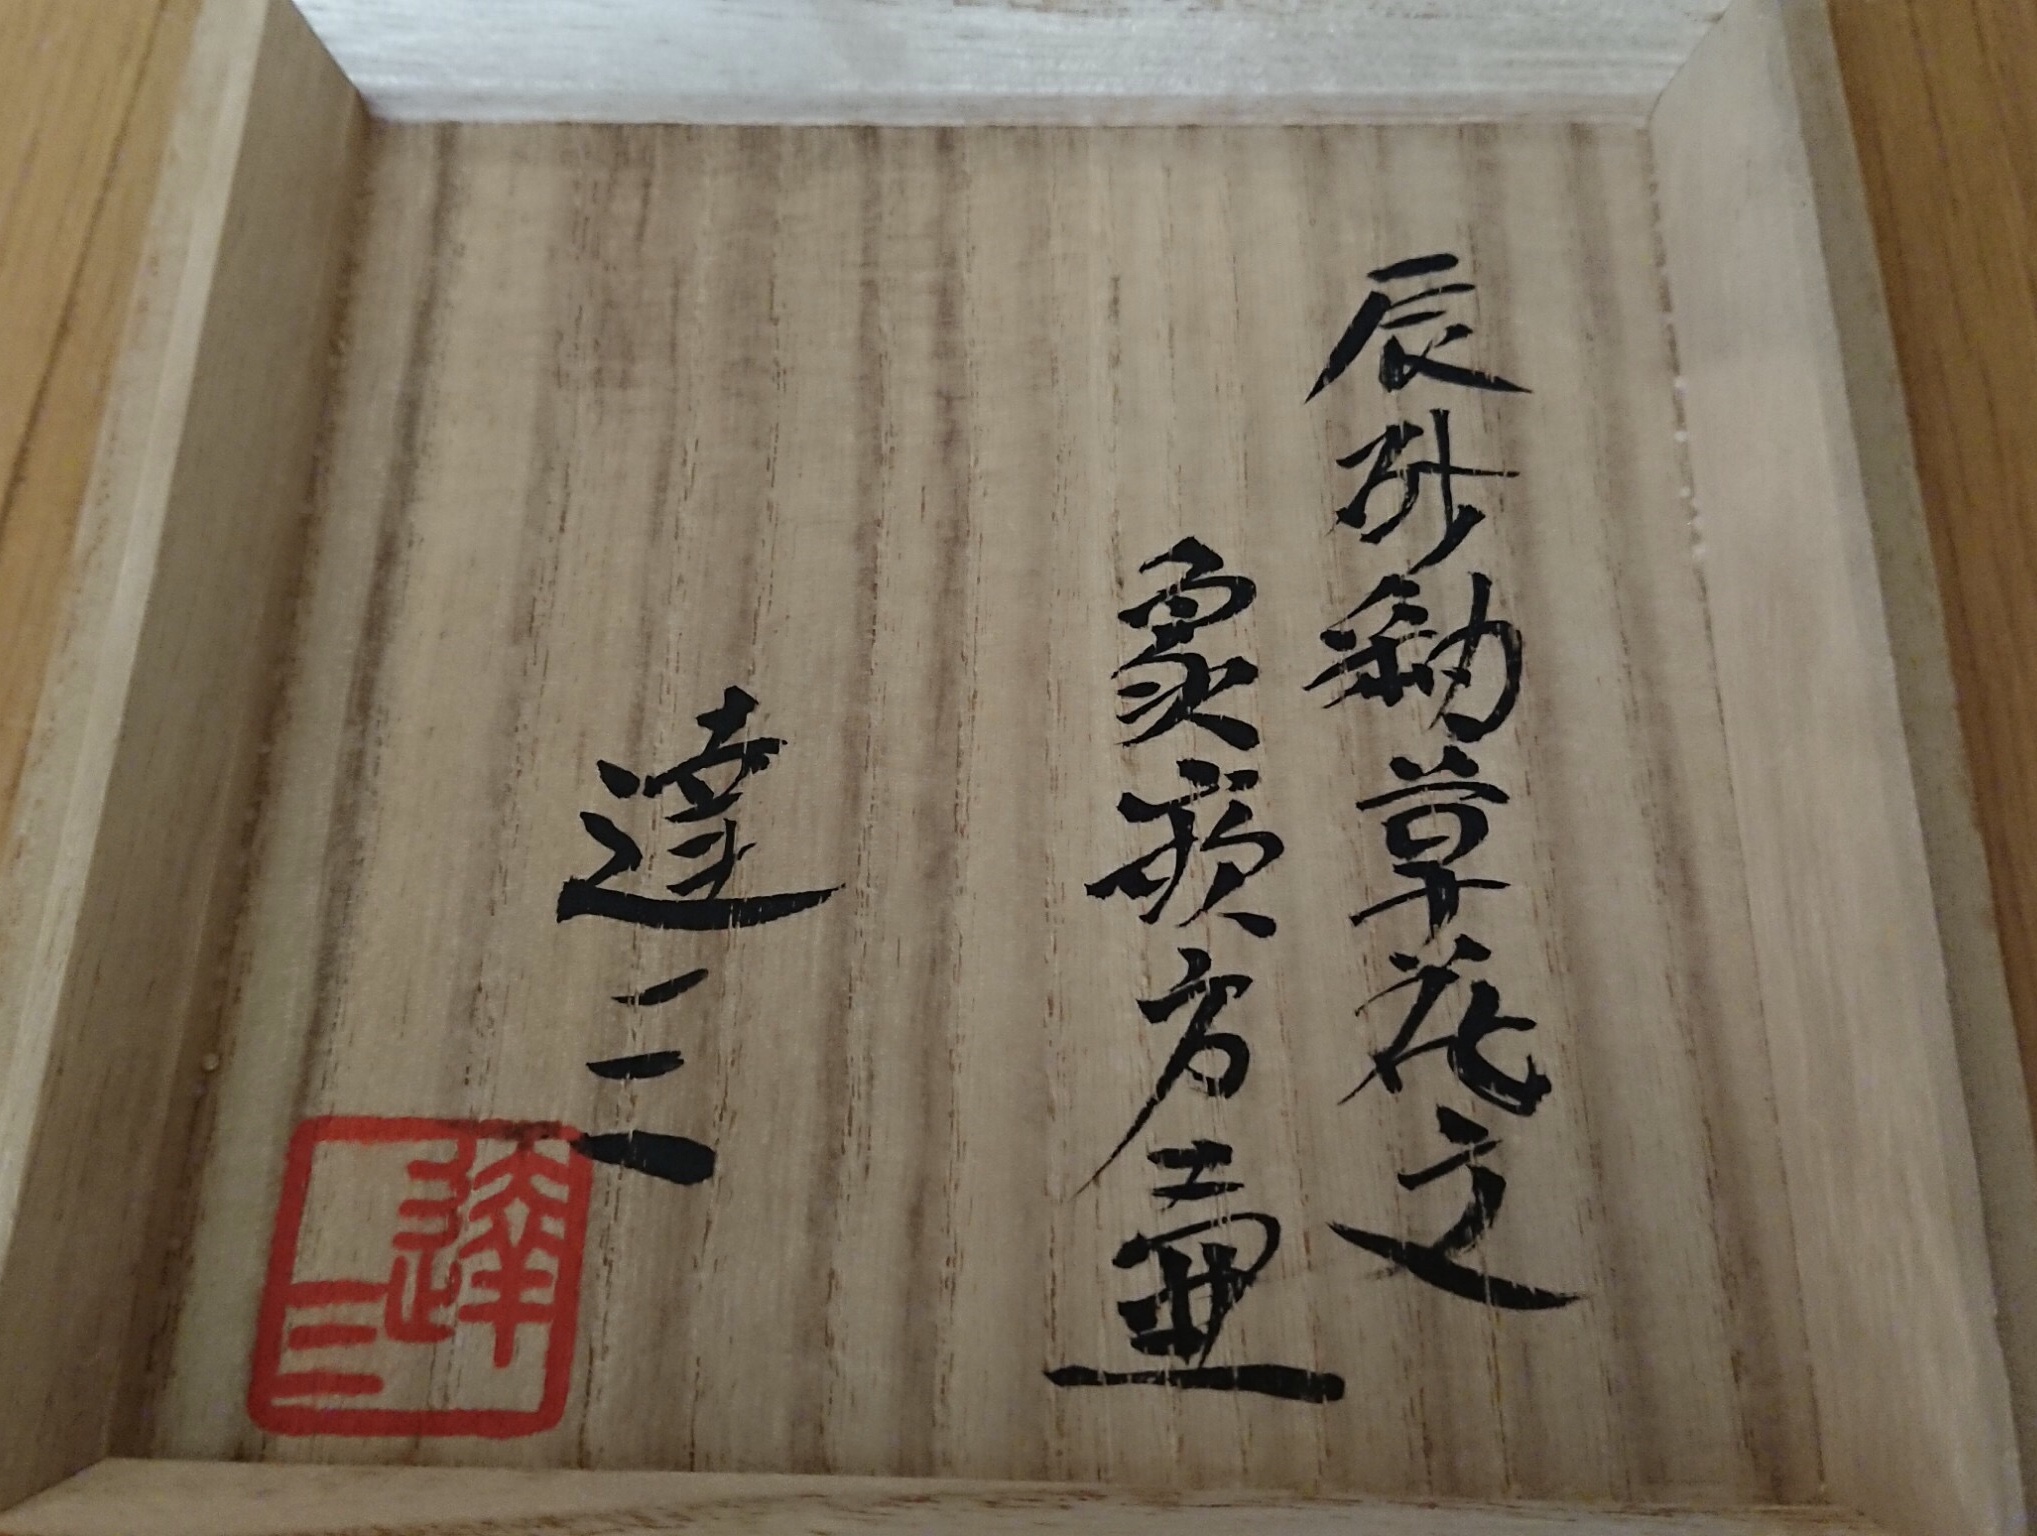 辰砂釉草花之
象嵌方壷
達三
達三